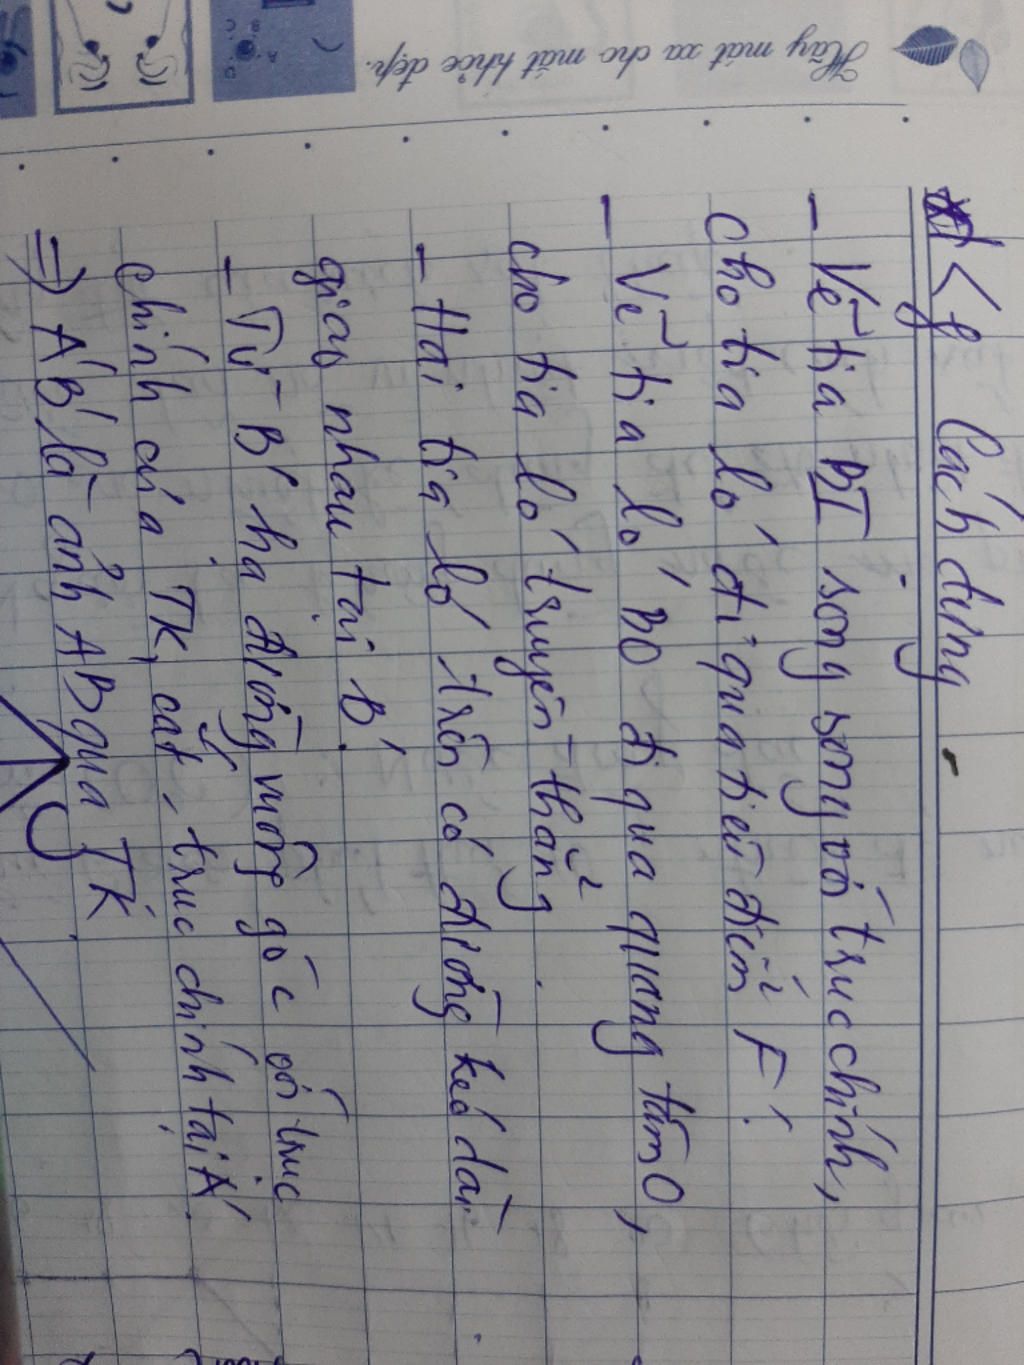 Hãy mát xa cho mắt khỏe đẹp.
Cách dựng
- Vẽ tia BI song song với trục chính,
cho tia ló đi qua tiêu điểm F'.
- Vẽ tia ló BO đi qua quang tâm O,
cho tia ló truyền thẳng.
- Hai tia ló trên có đường kéo dài
giao nhau tại B'.
- Từ B' hạ đường vuông góc với trục
chính của TK, cắt trục chính tại A'.
=> A'B' là ảnh AB qua TK.